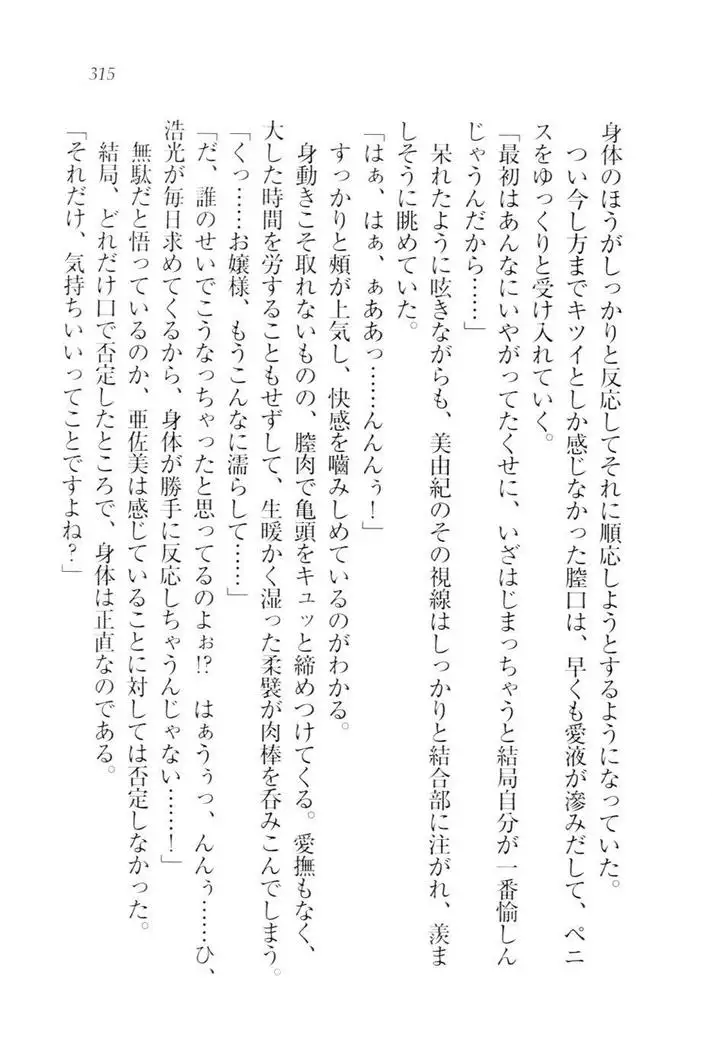 315
身体のほうがしっかりと反応してそれに順応しようとするようになっていた。
つい今し方までキツイとしか感じなかった膣口は、早くも愛液が滲みだして、ペニ
スをゆっくりと受け入れていく。
「最初はあんなにいやがってたくせに、いざはじまっちゃうと結局自分が一番愉しん
じゃうんだから……」
呆れたように呟きながらも、美由紀のその視線はしっかりと結合部に注がれ、羨ま
しそうに眺めていた。
「はぁ、はぁ、ぁああっ……んんんぅ！」
すっかりと頬が上気し、快感を嚙みしめているのがわかる。
身動きこそ取れないものの、膣肉で亀頭をキュッと締めつけてくる。愛撫もなく、
大した時間を労することもせずして、生暖かく湿った柔襞が肉棒を呑みこんでしまう。
「くっ……お嬢様、もうこんなに濡らして……」
「だ、誰のせいでこうなっちゃったと思ってるのよぉ!?　はぁうぅっ、んんぅ……ひ、
浩光が毎日求めてくるから、身体が勝手に反応しちゃうんじゃない……！」
無駄だと悟っているのか、亜佐美は感じていることに対しては否定しなかった。
結局、どれだけ口で否定したところで、身体は正直なのである。
「それだけ、気持ちいいってことですよね？」